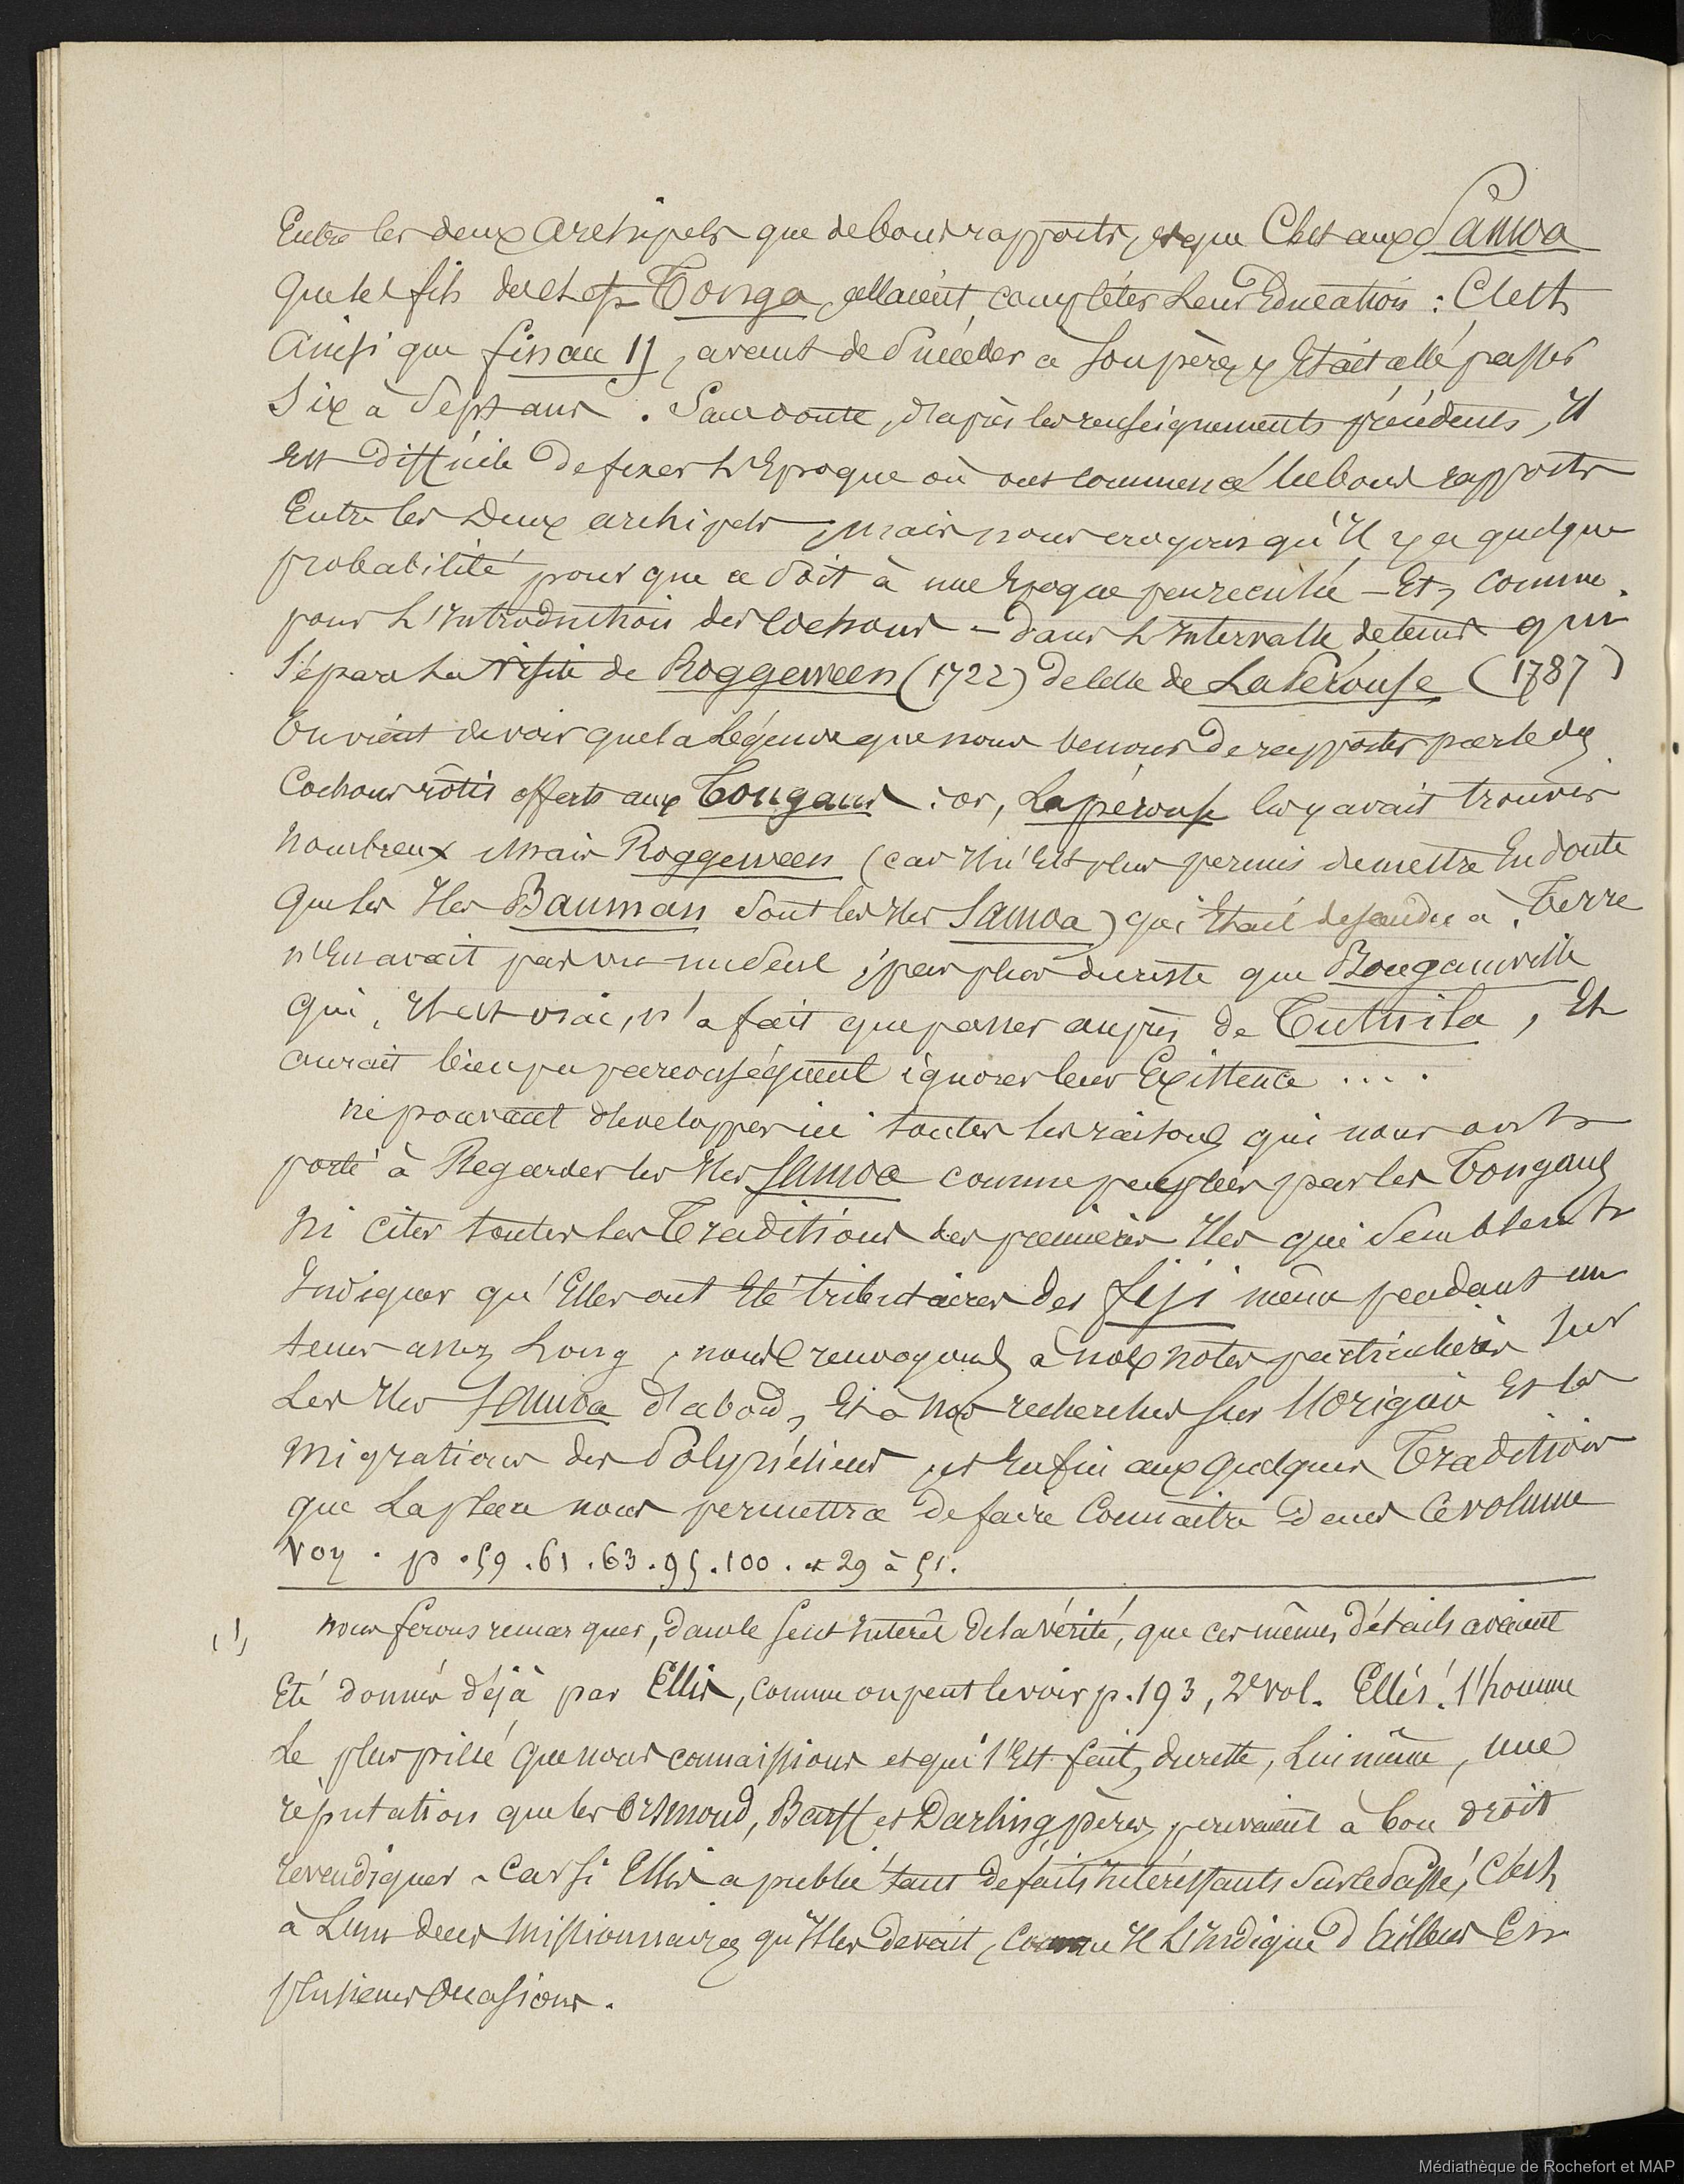 Entre les deux archipels que de bons rapports, et que C'est aux Samoa
que les fils des chefs Tonga, allaient, compléter leur Education : C'est
Ainsi que finau II, avant de Succéder à son père, y Etait allé passer
Six à Sept ans. Sans doute, d'après les renseignements précédents, il
est difficile de fixer l'Epoque où ont commencé les bons rapports
Entre les deux archipels, mais nous croyons qu'il y a quelque
probabilité pour que ce soit à une Epoque peu reculée - Et, comme
pour l'Introduction des Cochons - dans l'Intervalle de tems qui
Sépara la visite de Roggeween (1722) de celle de Lapérouse (1787)
On vient de voir que la légende que nous venons de rapporter parle des
Cochons rôtis offerts aux Tongans : or, Lapérouse les y avait trouvés
nombreux Mais Roggeween (car Il n'Est plus permis de mettre En doute
que les Iles Bauman sont les Iles Samoa) qui Etait descendu à Terre
n'En avait pas vu un seul, pas plus du reste que Bougainville
qui, Il est vrai, n'a fait que passer auprès de Tutuila, Et
aurait bien pu par conséquent ignorer leur Existence ....
ne pouvant développer ici toutes les raisons qui nous ont
porté à Regarder les Iles Samoa comme peuplées par les Tongans
Ni citer toutes les Traditions des premières Iles qui semblent
Indiquer qu'Elles ont Eté tributaires des fiji même pendant un
tems assez Long, nous renvoyons à nos notes particulières sur
Les Iles Samoa d'abord, Et à nos recherches sur l'Origine Et les
Migrations des Polynésiens, et Enfin aux quelques Traditions
que La place nous permettra de faire Connaitre dans Ce volume
Voy. p. 59. 61. 63. 95. 100. et 29 à 51.
(1) nous ferons remarquer, dans le seul Intérêt de la vérité, que ces mêmes détails avaient
Eté donnés déjà par Ellis, comme on peut le voir p. 193, 2e vol. Ellis! l'homme
Le plus pillé que nous connaissions et qui s'Est fait, du reste, Lui même, une
réputation que les Orsmond, Barff et Darling, pères, pouvaient à bon droit
revendiquer - Car si Ellis a publié tant de faits intéressants sur le passé, C'est
à L'un des Missionnaires qu'Il les devait, comme Il L'Indique d'Ailleurs En
plusieurs Occasions.
Médiathèque de Rochefort et MAP